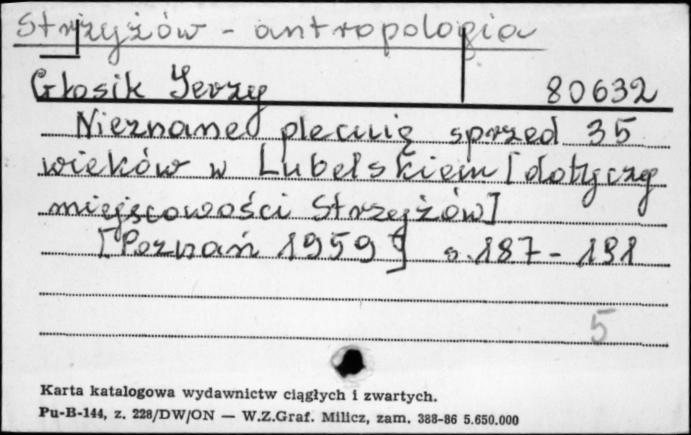 Strzyżów - antropologia
Głosik Jerzy 80632
Nieznane plemię sprzed 35
wieków w Lubelskiem [dotyczy
miejscowości Strzyżów]
[Poznań 1959] s. 187 - 191
5
Karta katalogowa wydawnictw ciągłych i zwartych.
Pu-B-144, z. 228/DW/ON — W.Z.Graf. Milicz, zam. 388-86 5.650.000